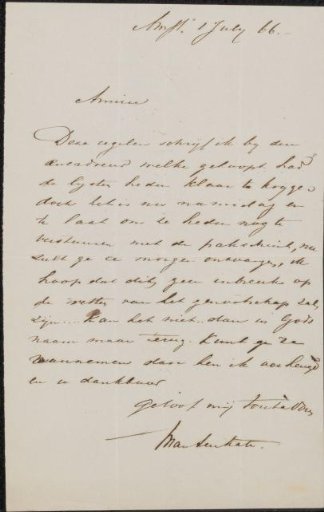 Amst. 1 July 66.
Amice
Deze regelen schrijf ik bij den
welke gehoopt had
de lijsten heden klaar te krygen
doch het is nu namiddag en
te laat om ze heden nog te
versturen met de pakschuit, nu
zult ge ze morgen ontvangen, ik
hoop dat dit geen inbreuk op
de wetten van het genootschap zal
zijn.... Kan het niet dan in Gods
naam maar terug. Kunt ge ze
aannemen dan ben ik verheugd
en u dankbaar
geloof mij